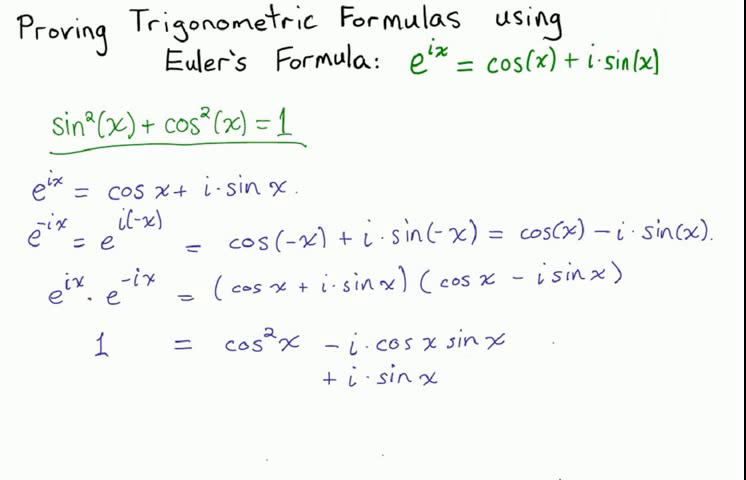 Proving Trigonometric Formulas using
Euler's Formula: e^{ix} = cos(x) + i·sin(x)
sin²(x) + cos²(x) = 1
e^{ix} = cos x + i·sin x.
e^{-ix} = e^{i(-x)} = cos(-x) + i·sin(-x) = cos(x) - i·sin(x).
e^{ix}·e^{-ix} = (cos x + i·sin x)(cos x - i sin x)
1 = cos²x - i·cos x sin x
+ i·sin x